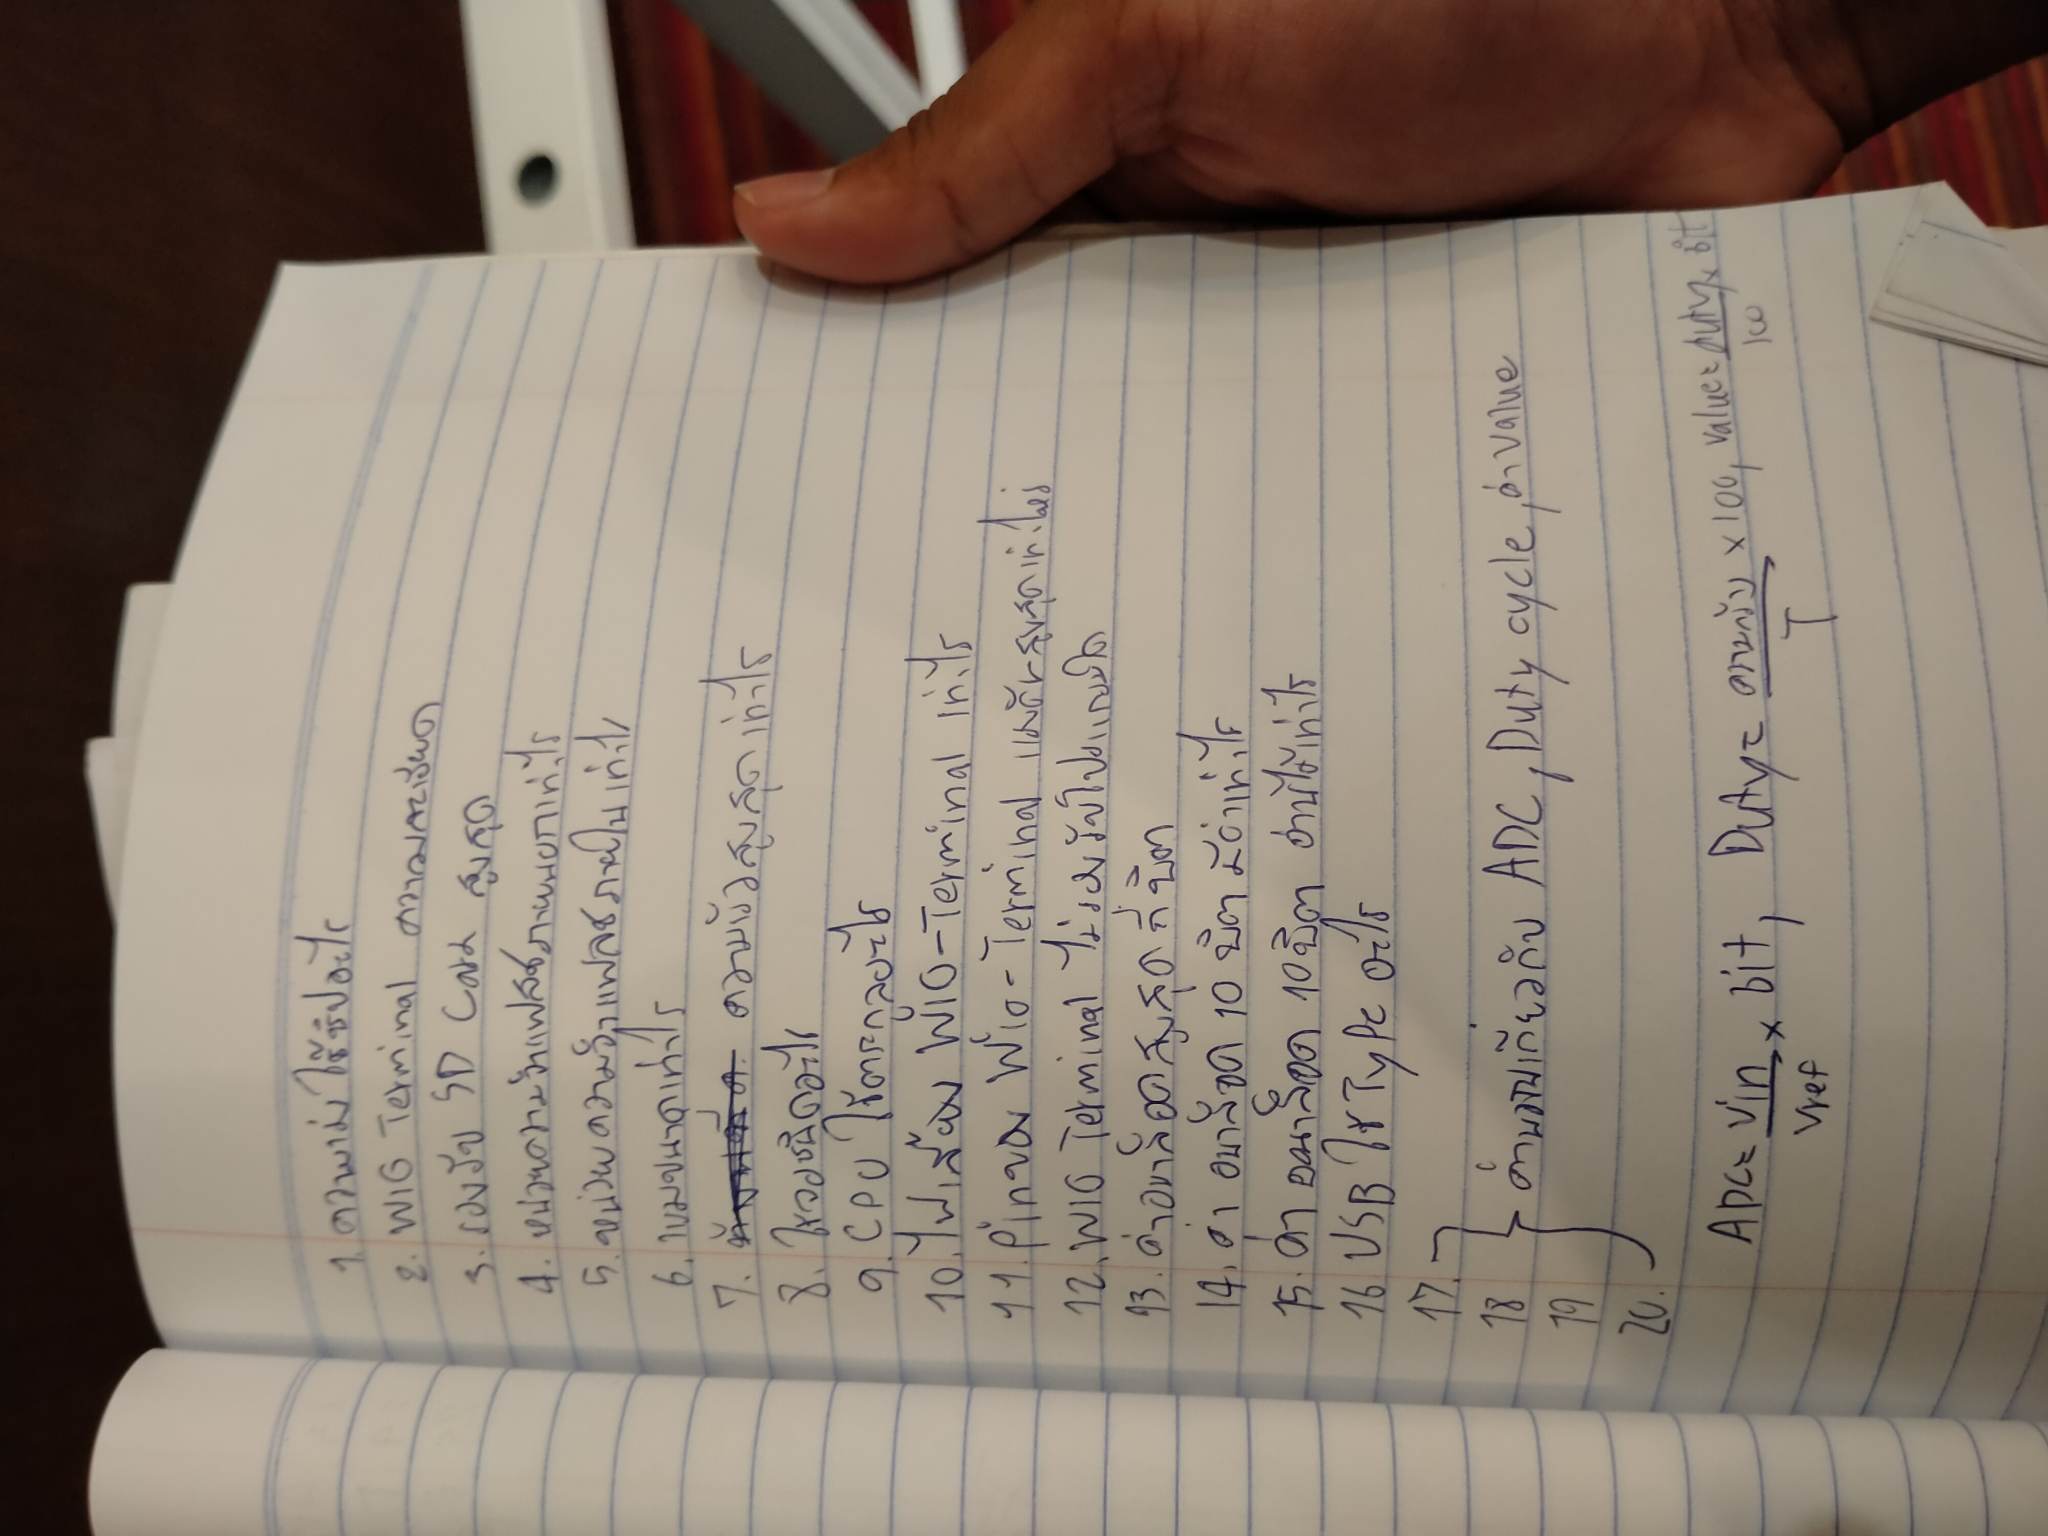 1. ความแม่มใช้ชิปอะไร
2. WIO Terminal ความละเอียด
3. รองรับ SD Card สูงสุด
4. หน่วยความจำแฟลชภายนอกเท่าไร
5. หน่วยความจำแฟลชภายในเท่าไร
6. แรมขนาดเท่าไร
7. ความเร็วสูงสุดเท่าไร
8. ใช้จอชนิดอะไร
9. CPU ใช้ตระกูลอะไร
10. ไฟเลี้ยง WIO-Terminal เท่าไร
11. Pinของ Wio-Terminal แรงดันสูงสุดเท่าไหร่
12. WIO Terminal ไม่รองรับโปรแกรมใด
13. ค่าอนาล็อคสูงสุดกี่บิต
14. ค่า อนาล็อค 10 บิต มีค่าเท่าไร
15. ค่า อนาล็อค 10บิต อ่านได้เท่าไร
16 USB ใช้ Type อะไร
17.
18 คำถามเกี่ยวกับ ADC, Duty cycle, ค่า value
19
20.
ADC = Vin/Vref × bit, Duty = /T × 100, value = Duty × bit/100